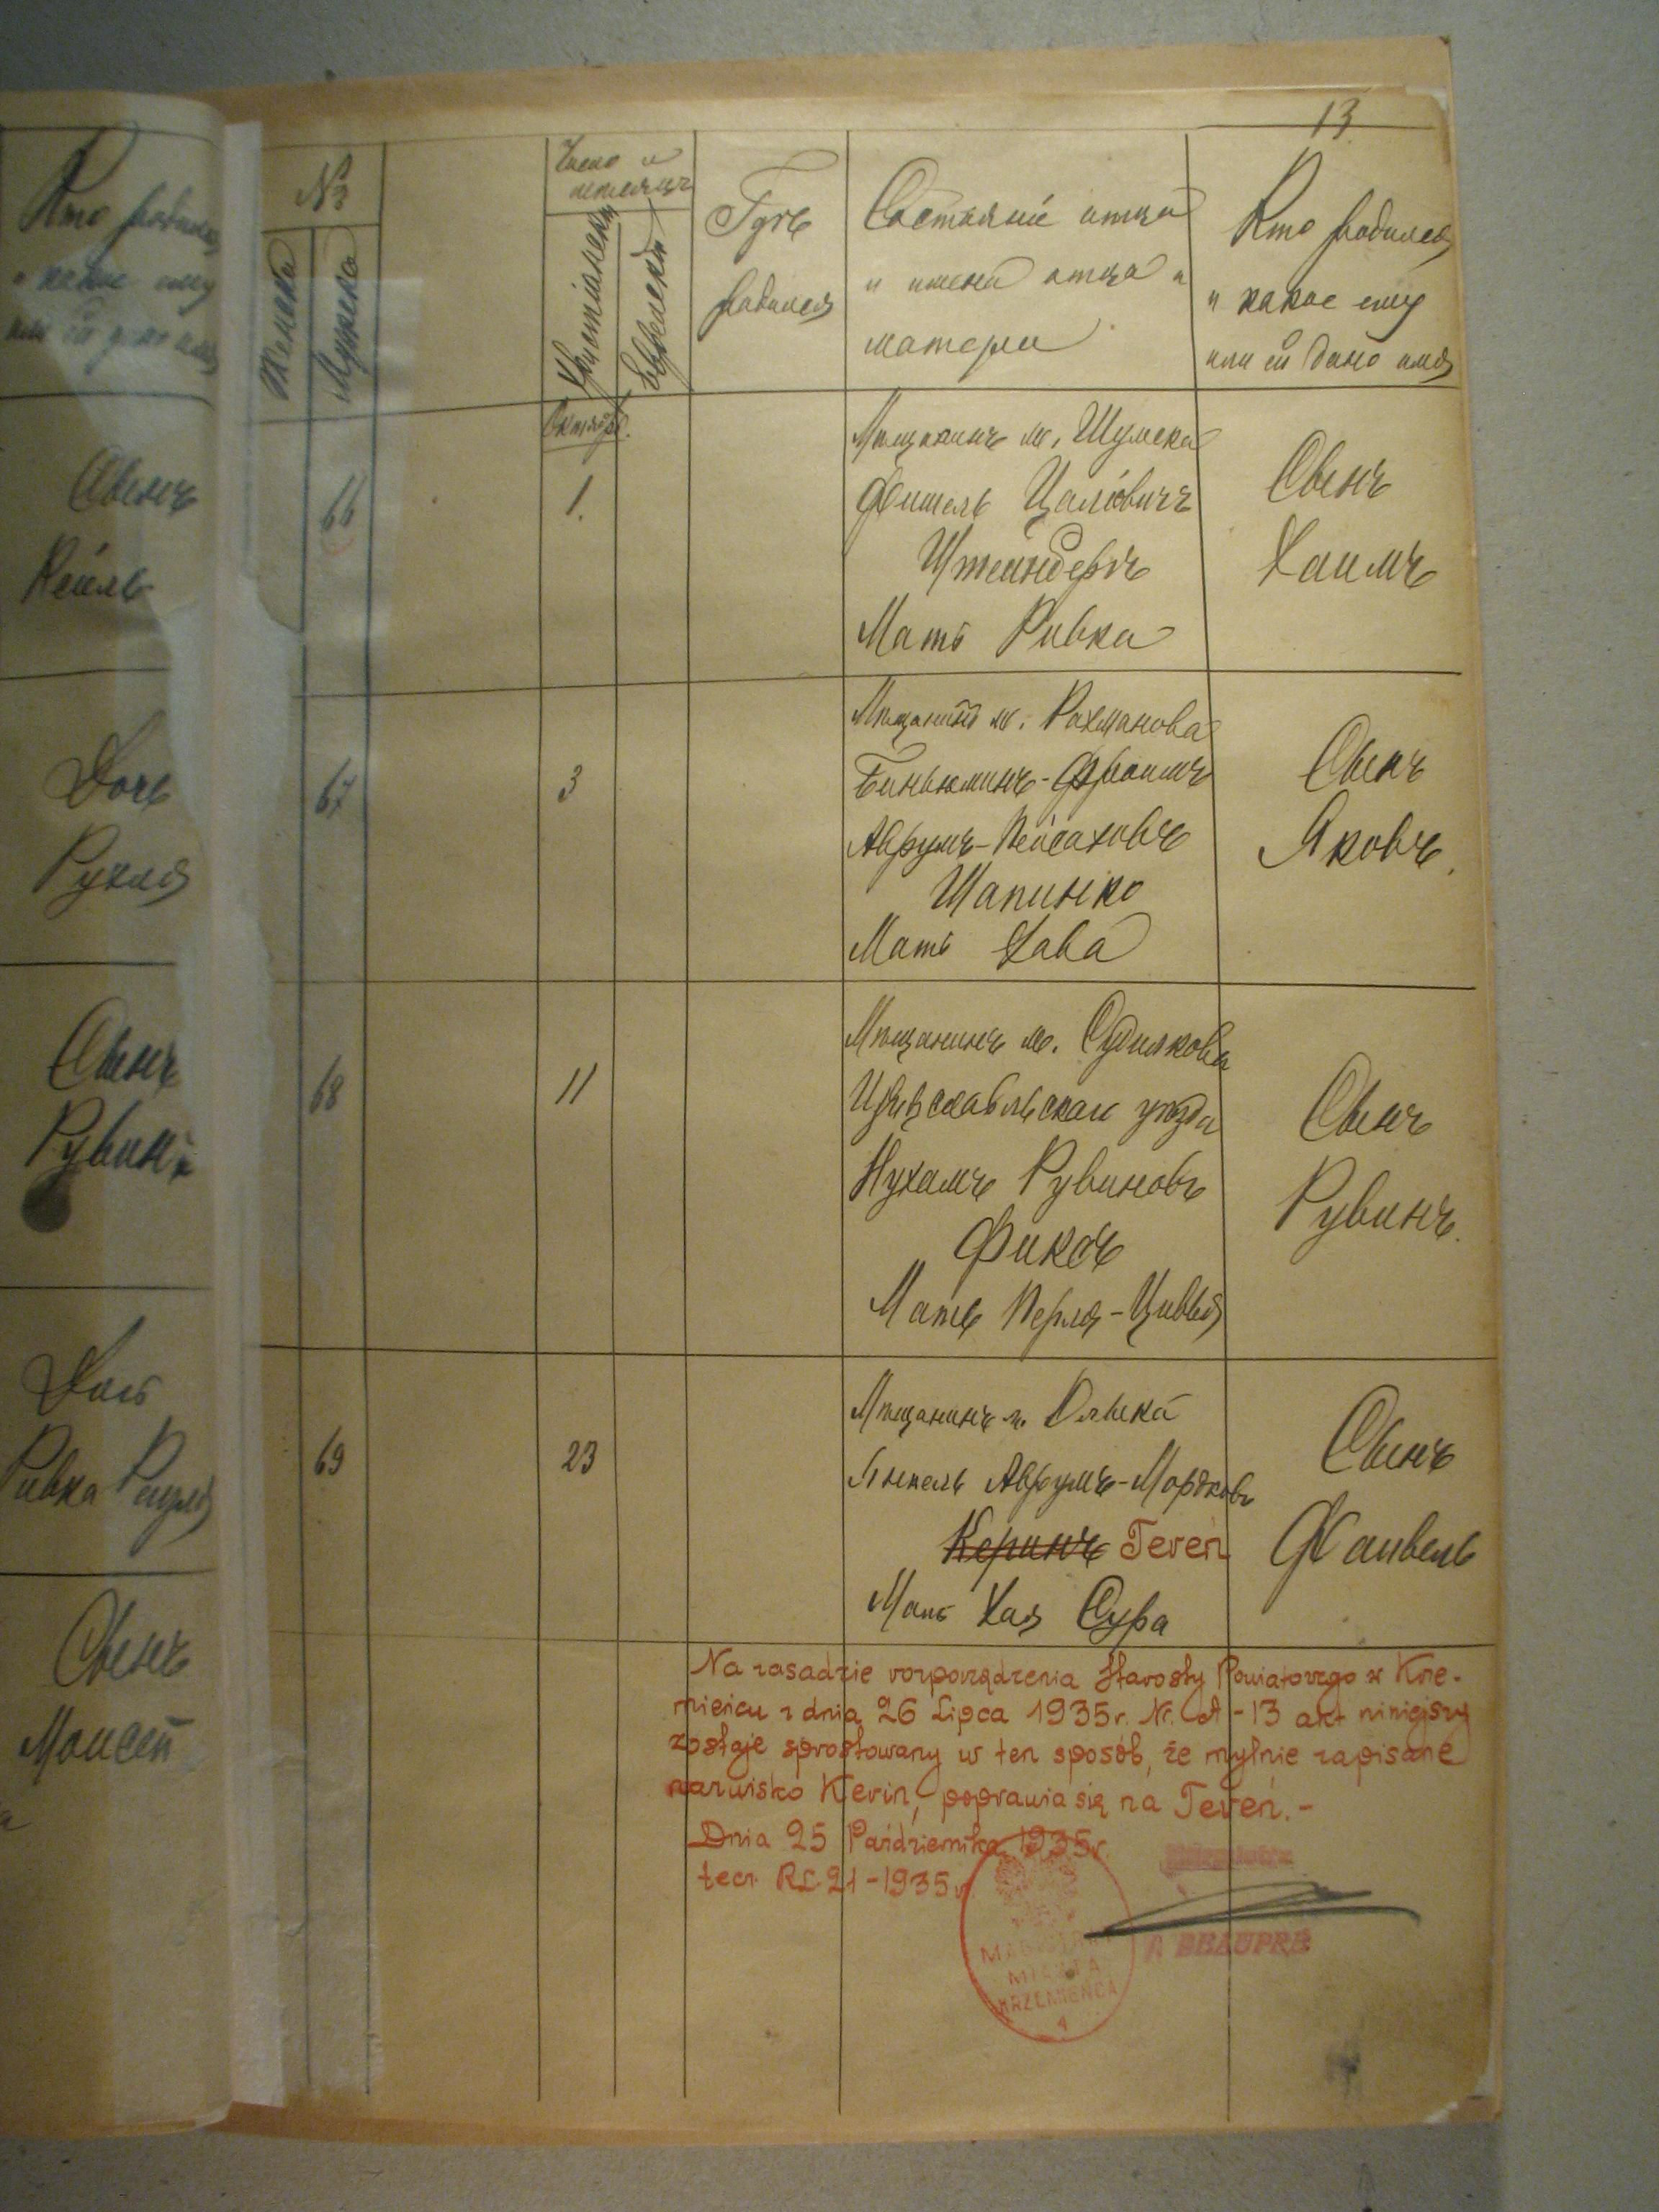 Кто родился
и какое ему
или ей дано имя
Сынъ
Кейль
Дочь
Рухля
Сынъ
Рувинъ
Дочь
Ривка
Сынъ
Моисей
13
№
Женска
Мужска
Число и
месяцъ
Христіански
Еврейски
Гдѣ
родился
Состояніе отца
и имена отца и
матери
Кто родился
и какое ему
или ей дано имя
Октябр.
66
1.
Мѣщанинъ м. Шумска
Фишель Цалiовичъ
Штейнберъ
Мать Ривка
Сынъ
Хаимъ
67
3
Мѣщанинъ м. Рахманова
Биньюминъ-Фроимъ
Аврумъ-Пейсаховъ
Шапинко
Мать Хава
Сынъ
Яковъ.
68
11
Мѣщанинъ м. Судилкова
уѣзда
Нухамъ Рувиновъ
Фиксъ
Мать Перля-Цивья
Сынъ
Рувинъ.
69
23
Мѣщанинъ м. Олыка
Янкель Аврумъ-Мордковъ
Керинъ Tereń
Мать Хая Сура
Сынъ
Файвель
Na zasadzie rozporządzenia Starosty Powiatowego w Krze-
mieńcu z dnia 26 Lipca 1935 r. Nr. A-13 akt niniejszy
zostaje sprostowany w ten sposób, że mylnie zapisane
nazwisko Kerin, poprawia się na Tereń.-
Dnia 25 Października 1935 r.
tecz. R.C. 21-1935 r.
MAGISTRAT
MIASTA
KRZEMIEŃCA
4
BEAUPRÉ